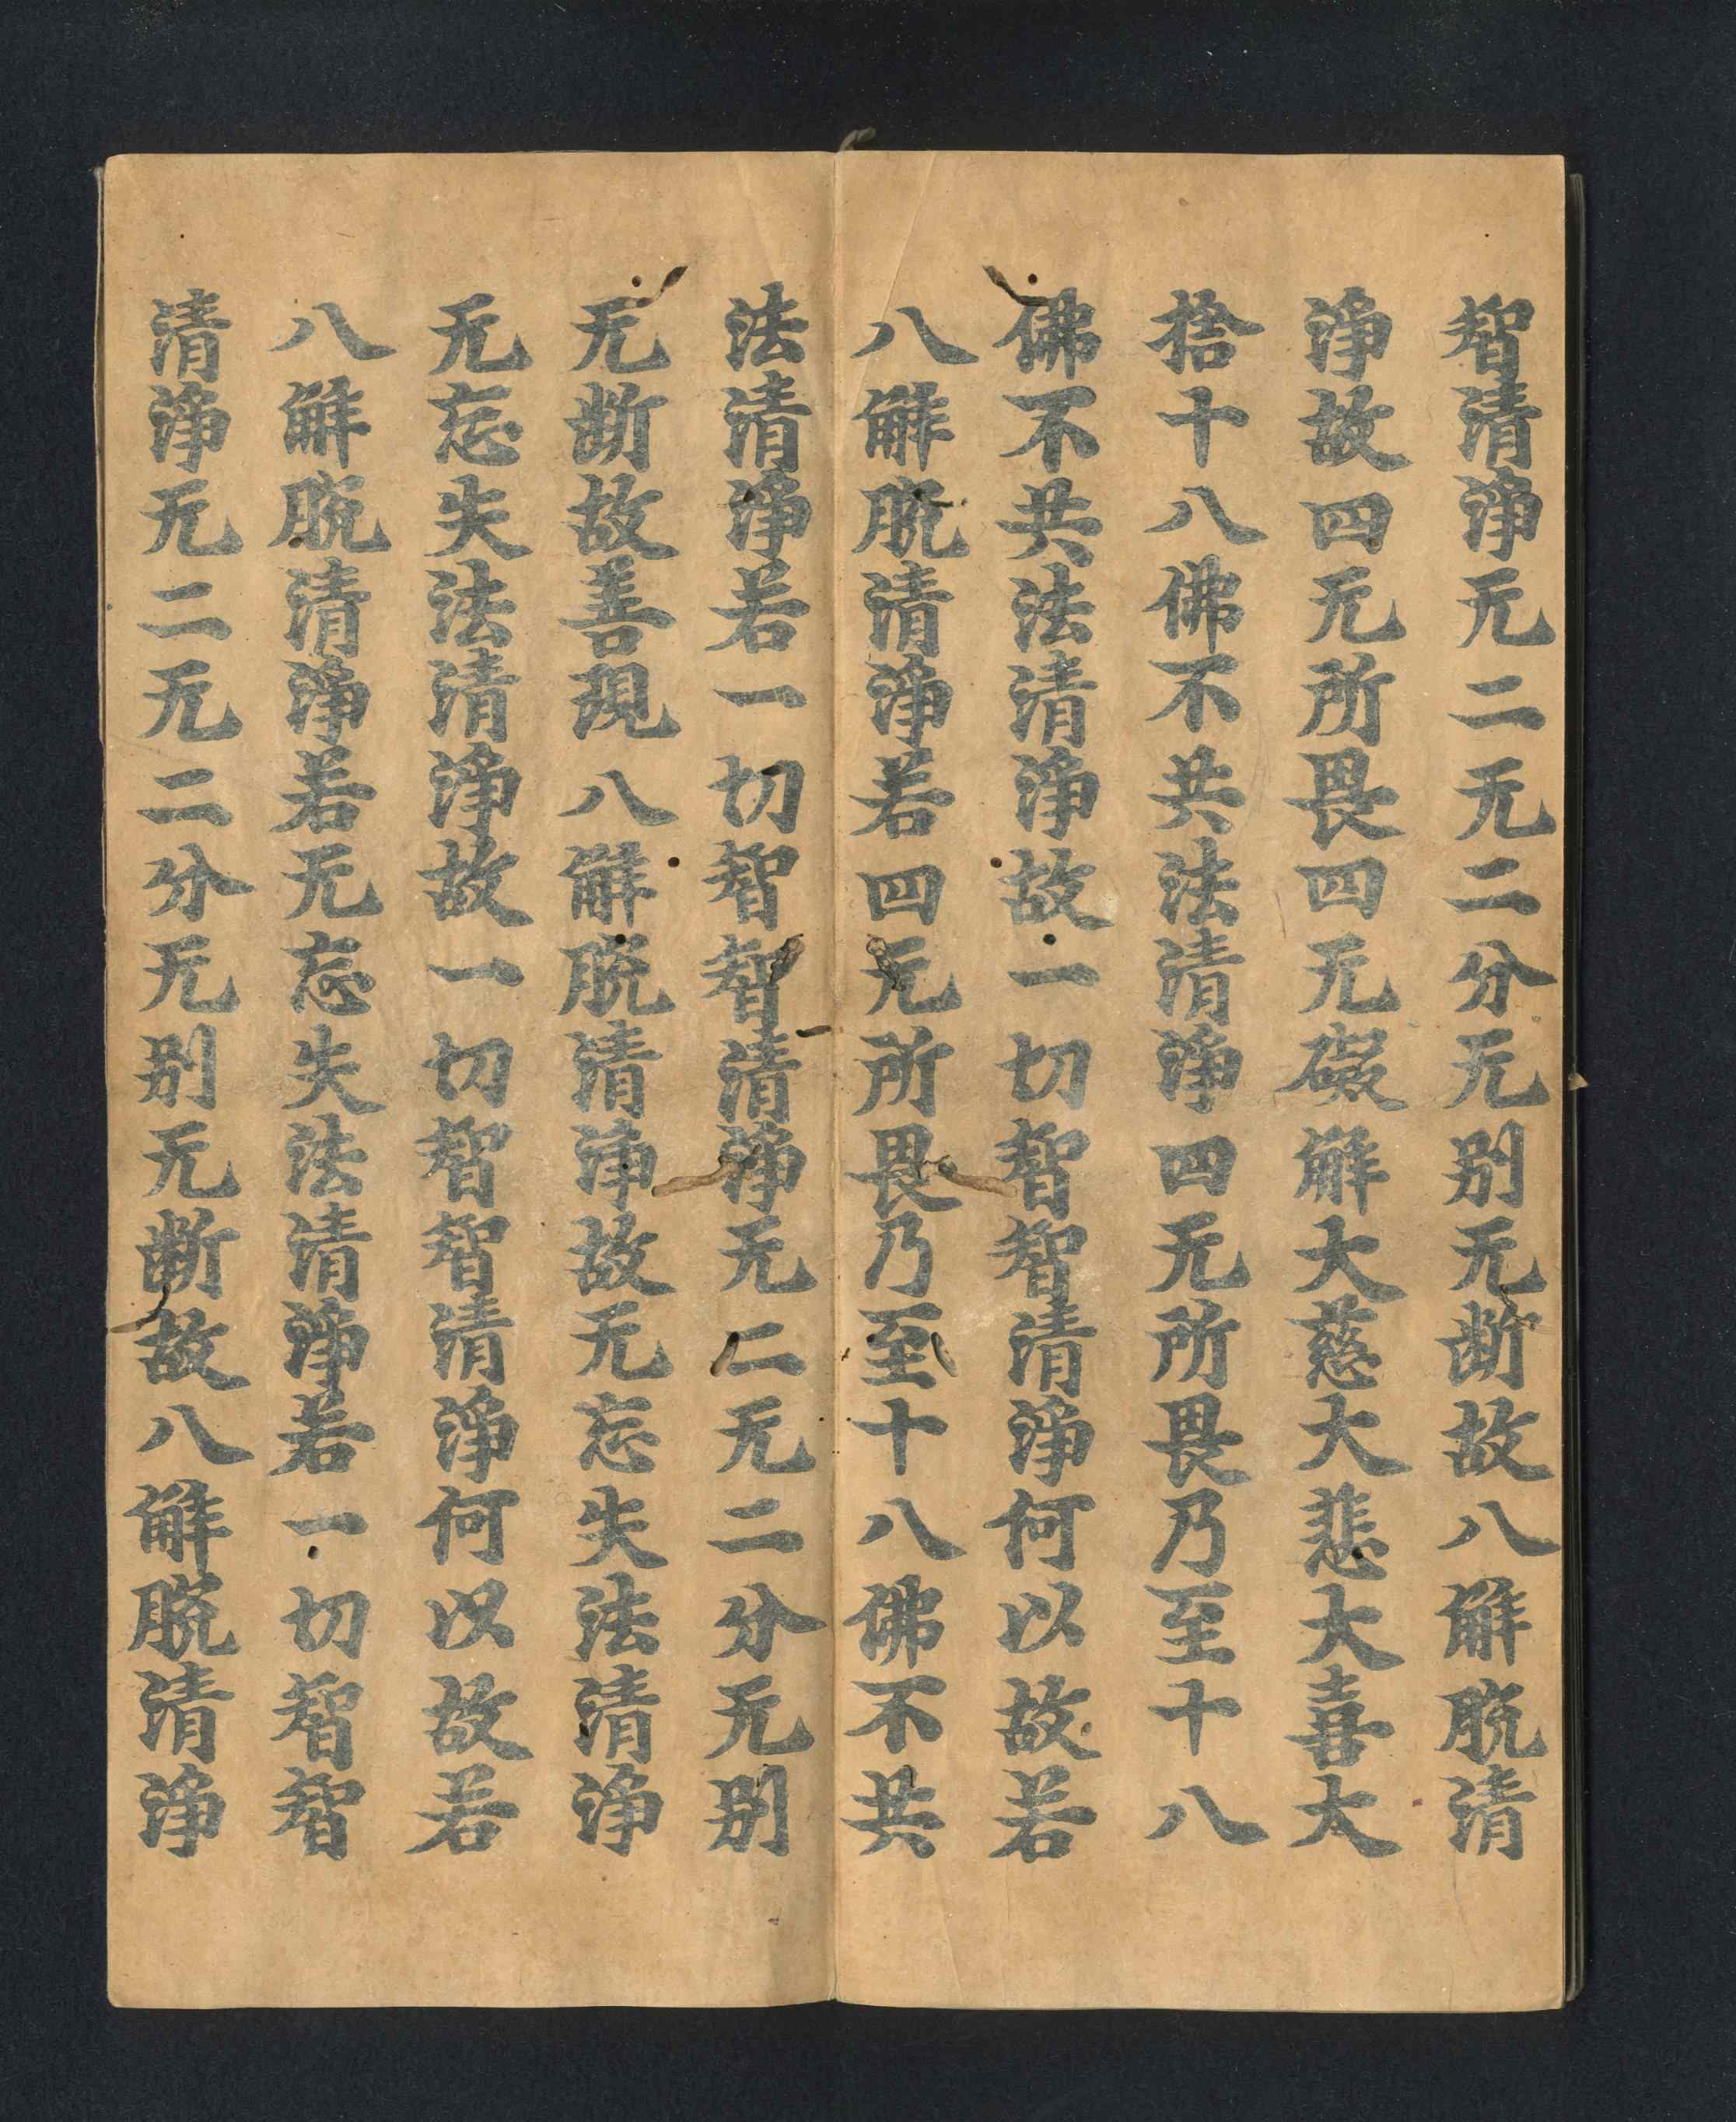 智清淨无二无二分无别无断故八解脫清
淨故四无所畏四无礙解大慈大悲大喜大
捨十八佛不共法清淨四无所畏乃至十八
佛不共法清淨故一切智智清淨何以故若
八解脫清淨若四无所畏乃至十八佛不共
法清淨若一切智智清淨无二无二分无别
无断故善現八解脫清淨故无忘失法清淨
无忘失法清淨故一切智智清淨何以故若
八解脫清淨若无忘失法清淨若一切智智
清淨无二无二分无别无断故八解脫清淨